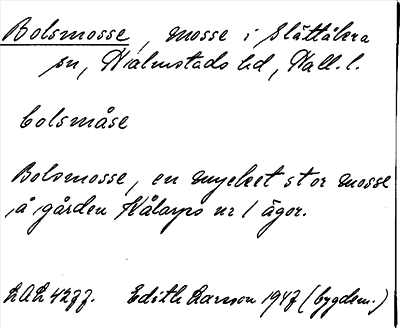 Bolsmosse, mosse i Slättåkra
sn, Halmstads hd, Hall. l.
bolsmåse
Bolsmosse, en mycket stor mosse
å gården Kålarps nr 1 ägor.
LAL 4277. Edith Larsson 1947 (bygdem.)